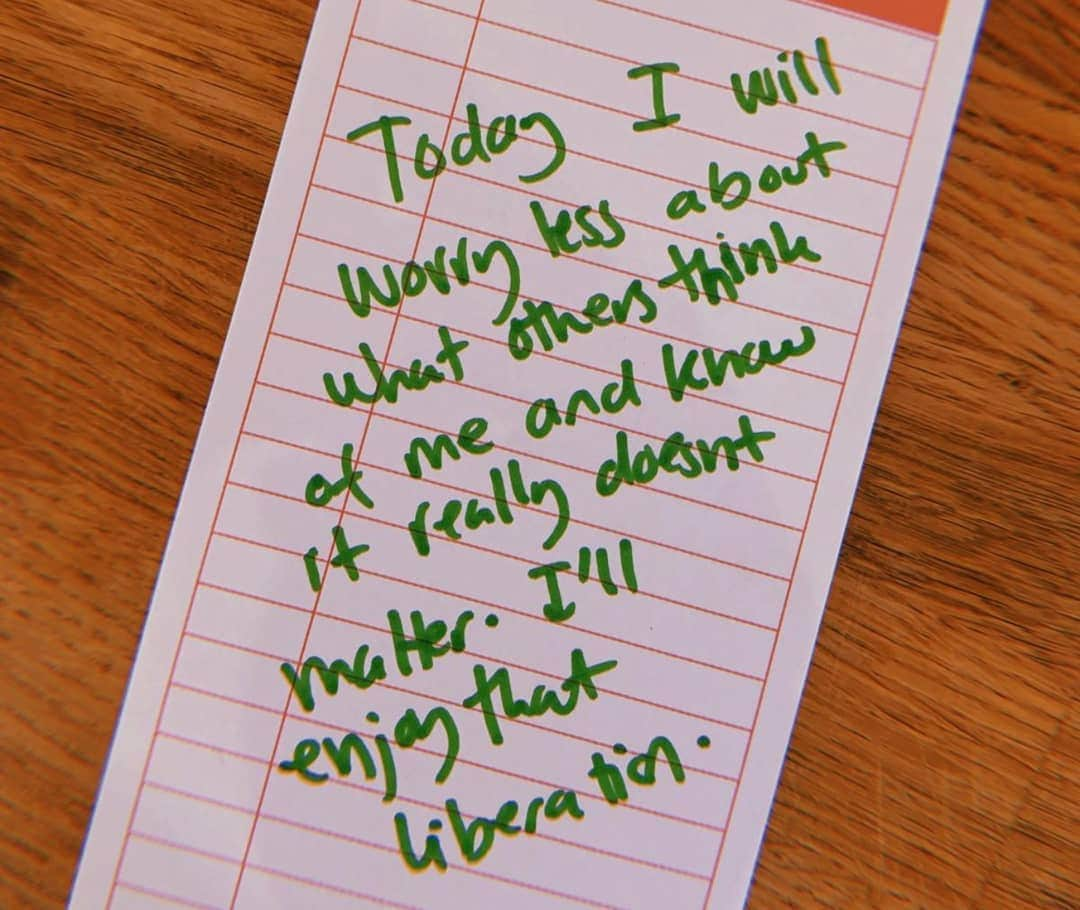 Today I will
worry less about
what others think
of me and know
it really doesnt
matter. I'll
enjoy that
liberation.